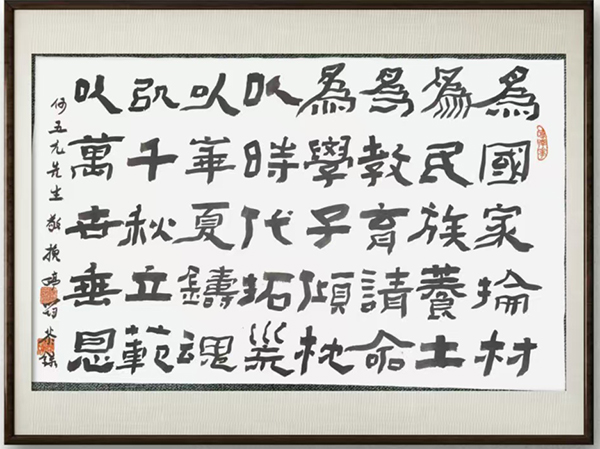 為國家掄材
為民族養士
為教育請命
為學子傾枕
以時代拓巢
以華夏鑄魂
以千秋立範
以萬世垂恩
何五元先生敬撰